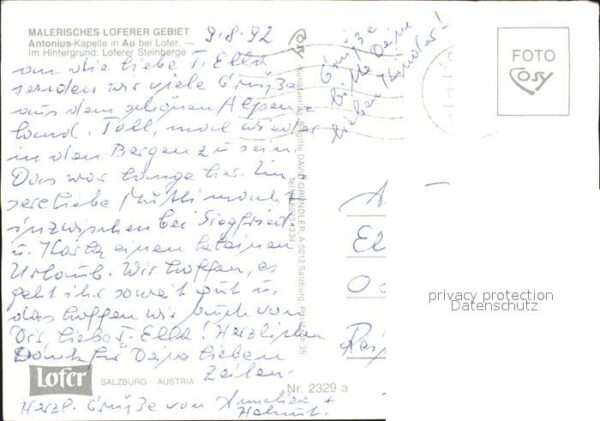 MALERISCHES LOFERER GEBIET
Antonius-Kapelle in Au bei Lofer. —
Im Hintergrund: Loferer Steinberge
9.8.92
an die liebe T. Ella
senden wir viele Grüße
aus dem schönen Alpen-
land. Toll, mal wieder
in den Bergen zu sein.
Das war lange her. Un
sere liebe Mutti macht
inzwischen bei Siegfried
u. Karla einen kleinen
Urlaub. Wir hoffen, es
geht ihr soweit gut u.
das hoffen wir auch von
Dir, liebe T. Ella! Herzlichen
Dank für Deine lieben
Zeilen.
Herzl. Grüße von Annelies +
Helmut.
Grüße
bitte Deine
lieben Kinder!
cosy
Kunstverlag Brigitte DAVID GRÜNDLER, A 5013 Salzburg, Postfach 35
FOTO
cosy
El
privacy protection
Datenschutz
Lofer
SALZBURG AUSTRIA
Nr. 2329 a